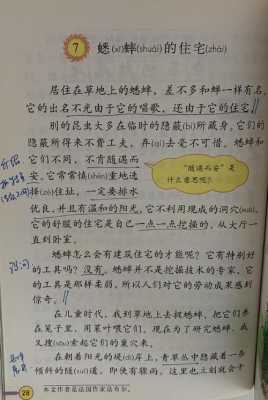 7 蟋(xī)蟀(shuài)的住宅(zhái)
居住在草地上的蟋蟀，差不多和蝉一样有名。
它的出名不光由于它的唱歌，还由于它的住宅。
别的昆虫大多在临时的隐蔽(bì)所藏身。它们的
隐蔽所得来不费工夫，弃(qì)去毫不可惜。蟋蟀和
它们不同，不肯随遇而
安。它常常慎(shèn)重地选
择(zé)住址，一定要排水
“随遇不安”是
什么意思呢？
优良，并且有温和的阳光。它不利用现成的洞穴(xué)，
它的舒服的住宅是自己一点一点挖掘的，从大厅一
直到卧室。
蟋蟀怎么会有建筑住宅的才能呢？它有特别好
的工具吗？没有。蟋蟀并不是挖掘技术的专家。它
的工具是那样柔弱，所以人们对它的劳动成果感到
惊奇。
在儿童时代，我到草地上去捉蟋蟀，把它们养
在笼子里，用菜叶喂它们。现在为了研究蟋蟀，我
又搜(sōu)索起它们的巢穴来。
在朝着阳光的堤(dī)岸上，青草丛中隐藏着一条
倾斜的隧(suì)道，即使有骤雨，这里也立刻就会干
28
本文作者是法国作家法布尔。